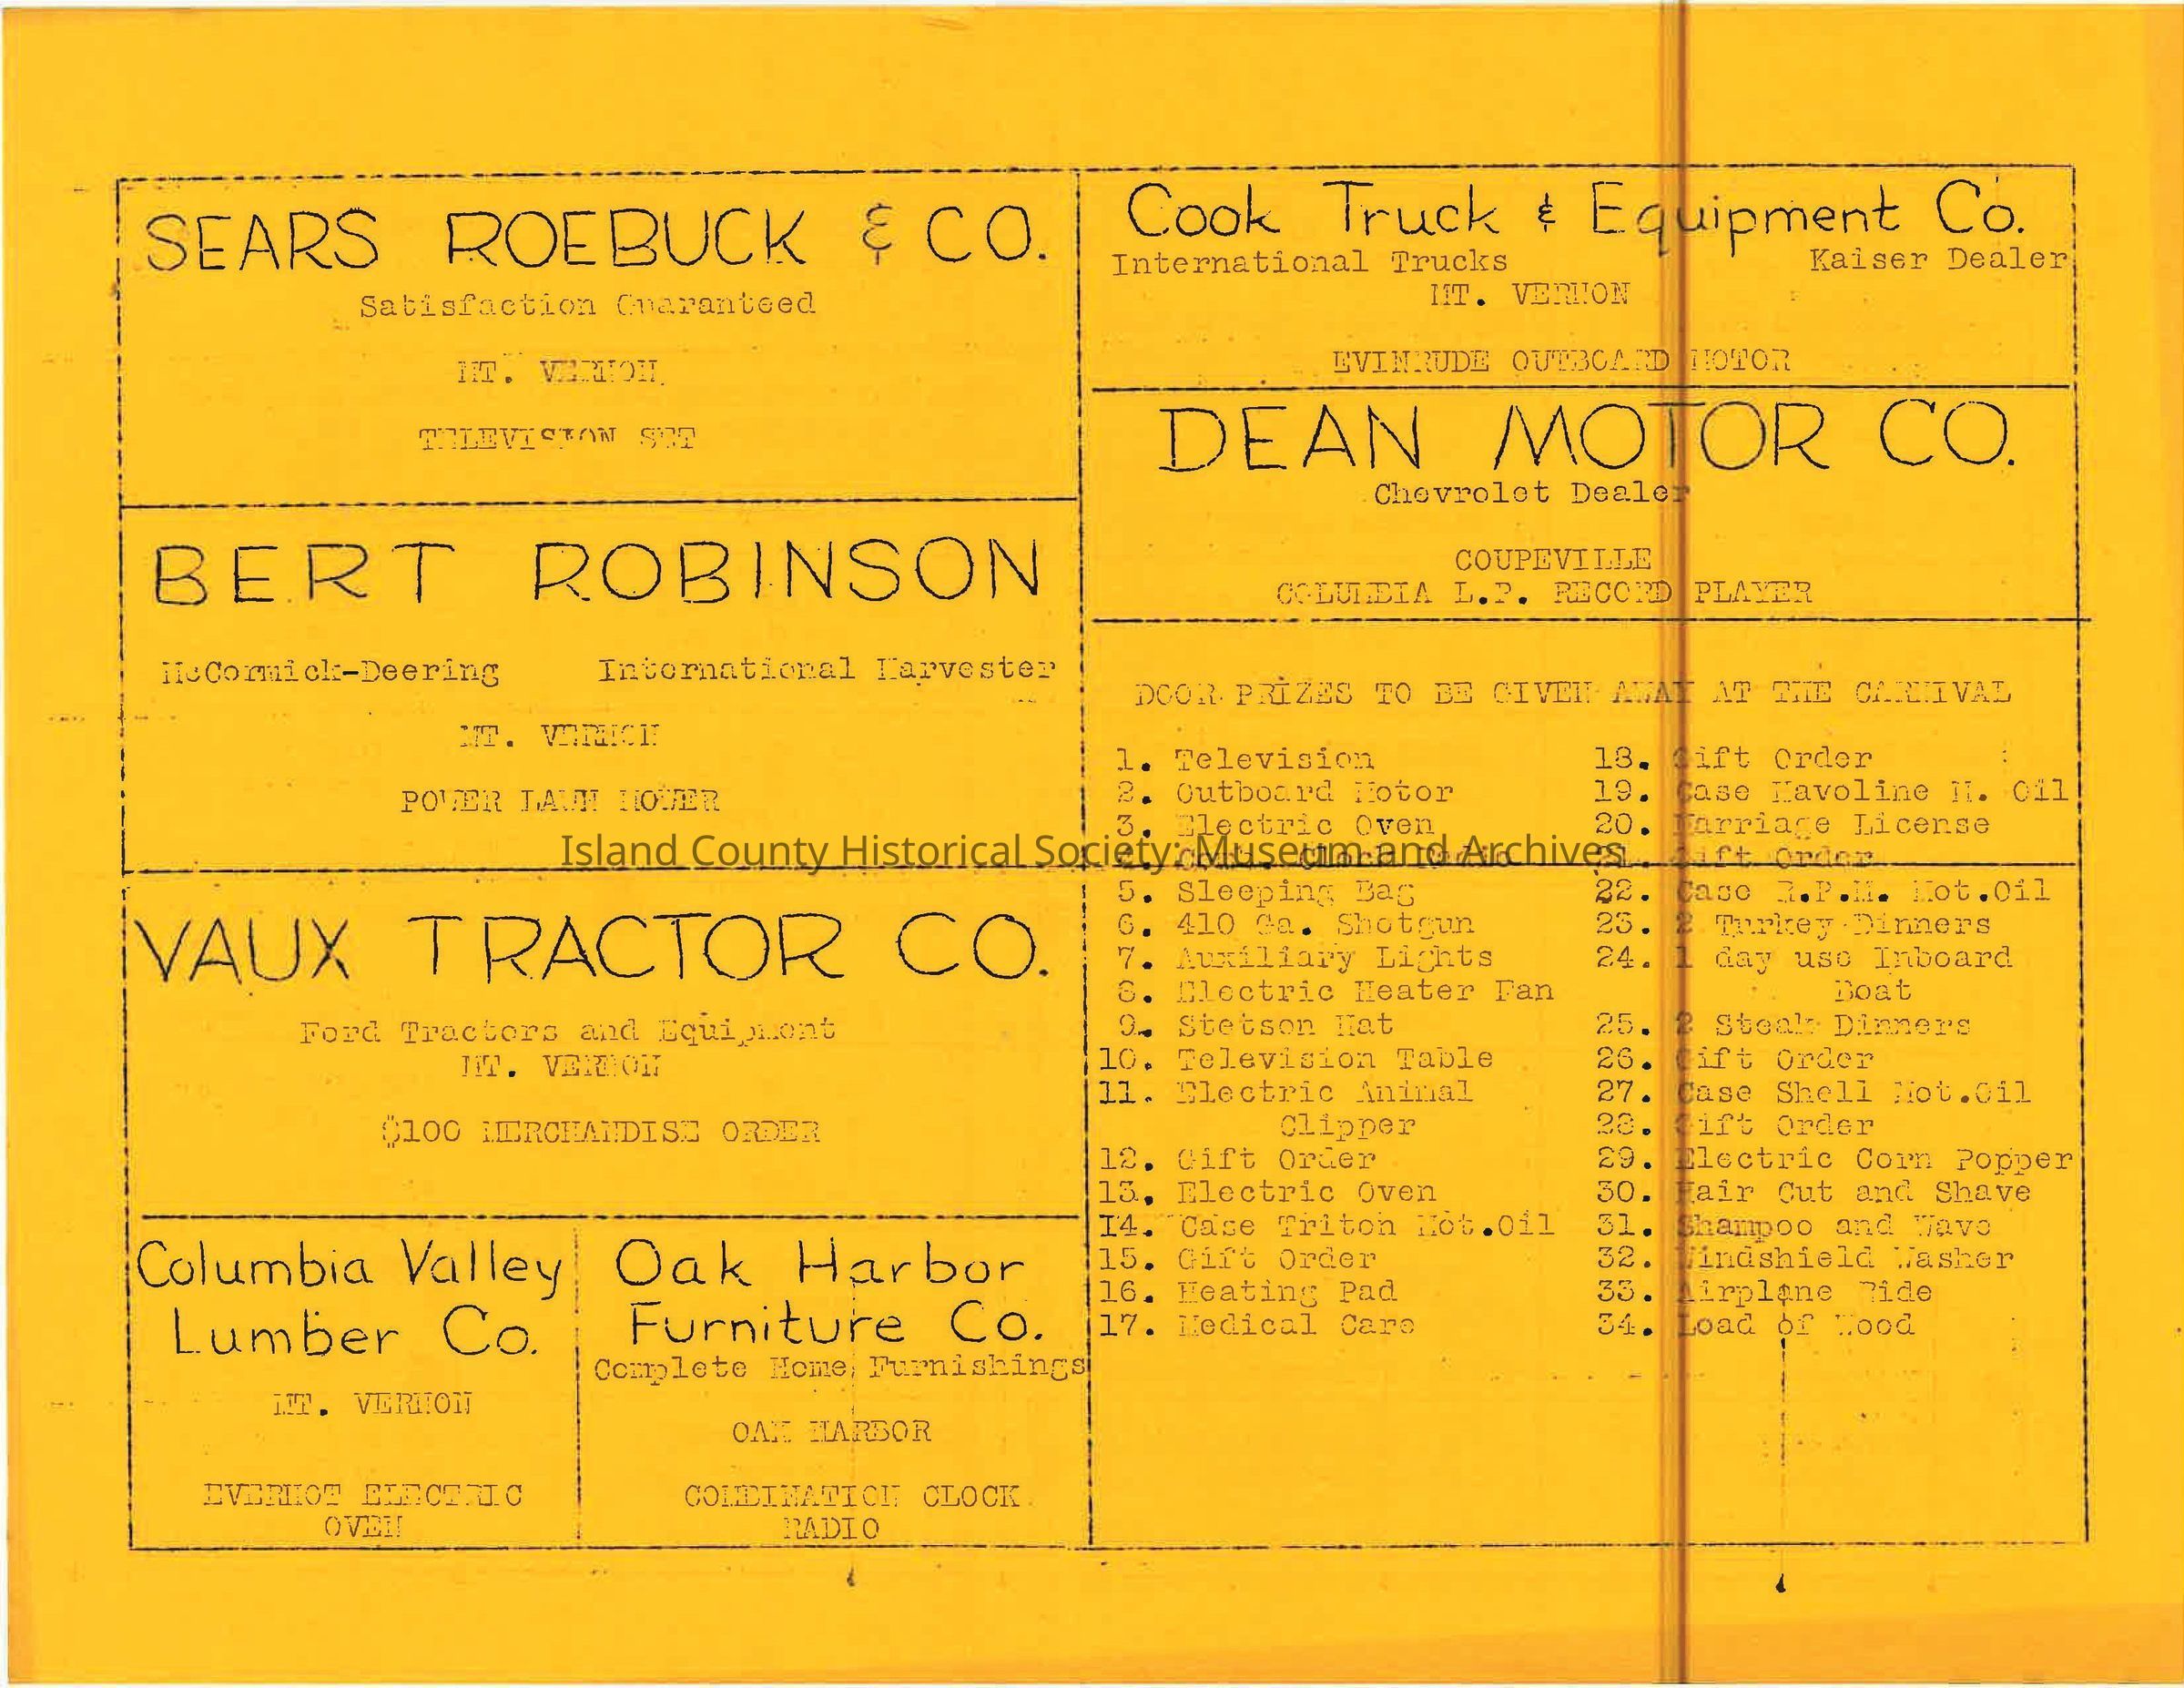 SEARS ROEBUCK & CO.
Satisfaction Guaranteed
MT. VERNON
TELEVISION SET
BERT ROBINSON
McCormick-Deering International Harvester
MT. VERNON
POWER LAWN MOWER
VAUX TRACTOR CO.
Ford Tractors and Equipment
MT. VERNON
$100 MERCHANDISE ORDER
Columbia Valley
Lumber Co.
MT. VERNON
EVERHOT ELECTRIC
OVEN
Oak Harbor
Furniture Co.
Complete Home Furnishings
OAK HARBOR
COMBINATION CLOCK
RADIO
Cook Truck & Equipment Co.
International Trucks Kaiser Dealer
MT. VERNON
EVINRUDE OUTBOARD MOTOR
DEAN MOTOR CO.
Chevrolet Dealer
COUPEVILLE
COLUMBIA L.P. RECORD PLAYER
DOOR PRIZES TO BE GIVEN AWAY AT THE CARNIVAL
1. Television
2. Outboard Motor
3. Electric Oven
4. Clock Radio
5. Sleeping Bag
6. 410 Ga. Shotgun
7. Auxiliary Lights
8. Electric Heater Fan
9. Stetson Hat
10. Television Table
11. Electric Animal
Clipper
12. Gift Order
13. Electric Oven
14. Case Triton Mot.Oil
15. Gift Order
16. Heating Pad
17. Medical Care
18. Gift Order
19. Case Havoline M. Oil
20. Marriage License
21. Gift Order
22. Case R.P.M. Mot.Oil
23. 2 Turkey Dinners
24. 1 day use Inboard
Boat
25. 2 Steak Dinners
26. Gift Order
27. Case Shell Mot.Oil
28. Gift Order
29. Electric Corn Popper
30. Hair Cut and Shave
31. Shampoo and Wave
32. Windshield Washer
33. Airplane Ride
34. Load of Wood
Island County Historical Society: Museum and Archives